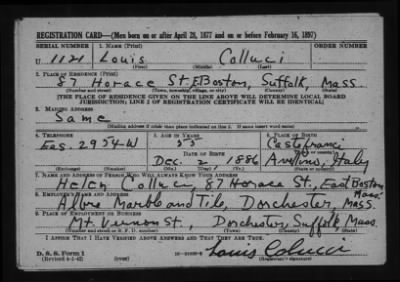 REGISTRATION CARD—(Men born on or after April 28, 1877 and on or before February 16, 1897)
SERIAL NUMBER 1. NAME (Print) ORDER NUMBER
U 1121 Louis Colluci
(First) (Middle) (Last)
2. PLACE OF RESIDENCE (Print)
87 Horace St. E. Boston, Suffolk, Mass.
(Number and street) (Town, township, village, or city) (County) (State)
[THE PLACE OF RESIDENCE GIVEN ON THE LINE ABOVE WILL DETERMINE LOCAL BOARD
JURISDICTION; LINE 2 OF REGISTRATION CERTIFICATE WILL BE IDENTICAL]
3. MAILING ADDRESS
Same
[Mailing address if other than place indicated on line 2. If same insert word same]
4. TELEPHONE 5. AGE IN YEARS 6. PLACE OF BIRTH
Eas. 2954-W 55 Castelfranci
DATE OF BIRTH (Town or county)
Dec. 2, 1886 Avellino, Italy
(Exchange) (Number) (Mo.) (Day) (Yr.) (State or country)
7. NAME AND ADDRESS OF PERSON WHO WILL ALWAYS KNOW YOUR ADDRESS
Helen Colluci, 87 Horace St., East Boston
Mass.
8. EMPLOYER'S NAME AND ADDRESS
Marble and Tile, Dorchester, Mass.
9. PLACE OF EMPLOYMENT OR BUSINESS
Mt. Vernon St., Dorchester, Suffolk Mass.
(Number and street or R. F. D. number) (Town) (County) (State)
I AFFIRM THAT I HAVE VERIFIED ABOVE ANSWERS AND THAT THEY ARE TRUE.
D. S. S. Form 1 Louis Colucci
(Revised 4-1-42) (over) (Registrant's signature)